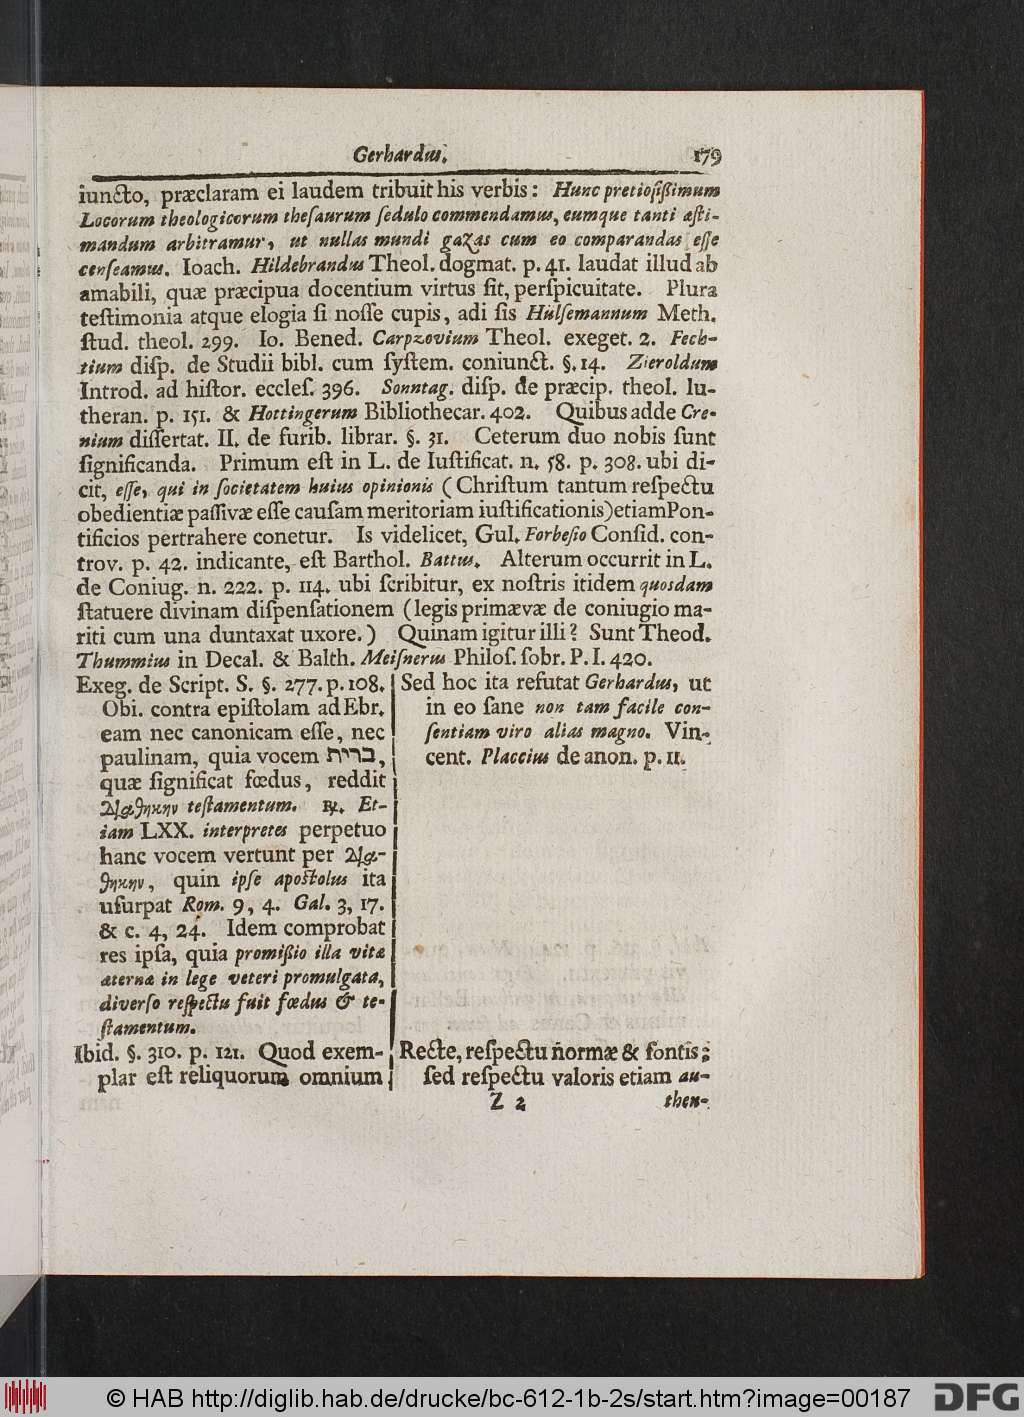 Gerhardus. 179
iuncto, præclaram ei laudem tribuit his verbis: Hunc pretioſiſſimum
Locorum theologicorum theſaurum ſedulo commendamus, eumque tanti æſti-
mandum arbitramur, ut nullas mundi gazas cum eo comparandas eſſe
cenſeamus. Ioach. Hildebrandus Theol. dogmat. p. 41. laudat illud ab
amabili, quæ præcipua docentium virtus ſit, perſpicuitate. Plura
teſtimonia atque elogia ſi noſſe cupis, adi ſis Hülſemannum Meth.
ſtud. theol. 299. Io. Bened. Carpzovium Theol. exeget. 2. Fech-
tium diſp. de Studii bibl. cum ſyſtem. coniunct. §. 14. Zieroldum
Introd. ad hiſtor. eccleſ. 396. Sonntag. diſp. de præcip. theol. lu-
theran. p. 151. & Hottingerum Bibliothecar. 402. Quibus adde Cre-
nium diſſertat. II. de furib. librar. §. 31. Ceterum duo nobis ſunt
ſignificanda. Primum eſt in L. de Iuſtificat. n. 58. p. 308. ubi di-
cit, eſſe, qui in ſocietatem huius opinionis (Chriſtum tantum reſpectu
obedientiæ paſſivæ eſſe cauſam meritoriam iuſtificationis) etiam Pon-
tificios pertrahere conetur. Is videlicet, Gul. Forbeſio Conſid. con-
trov. p. 42. indicante, eſt Barthol. Battus. Alterum occurrit in L.
de Coniug. n. 222. p. 114. ubi ſcribitur, ex noſtris itidem quosdam
ſtatuere divinam diſpenſationem (legis primævæ de coniugio ma-
riti cum una duntaxat uxore.) Quinam igitur illi? Sunt Theod.
Thummius in Decal. & Balth. Meiſnerus Philoſ. ſobr. P. I. 420.
Exeg. de Script. S. §. 277. p. 108.
Obi. contra epiſtolam ad Ebr.
eam nec canonicam eſſe, nec
paulinam, quia vocem ברית,
quæ ſignificat fœdus, reddit
διαθήκην teſtamentum. ℞. Et-
iam LXX. interpretes perpetuo
hanc vocem vertunt per δια-
θήκην, quin ipſe apoſtolus ita
uſurpat Rom. 9, 4. Gal. 3, 17.
& c. 4, 24. Idem comprobat
res ipſa, quia promiſſio illa vitæ
æternæ in lege veteri promulgata,
diverſo reſpectu fuit fœdus & te-
ſtamentum.
Ibid. §. 310. p. 121. Quod exem-
plar eſt reliquorum omnium
Sed hoc ita refutat Gerhardus, ut
in eo ſane non tam facile con-
ſentiam viro alias magno. Vin-
cent. Placcius de anon. p. 11.
Recte, reſpectu normæ & fontis;
ſed reſpectu valoris etiam au-
Z 2 then-
© HAB http://diglib.hab.de/drucke/bc-612-1b-2s/start.htm?image=00187
DFG